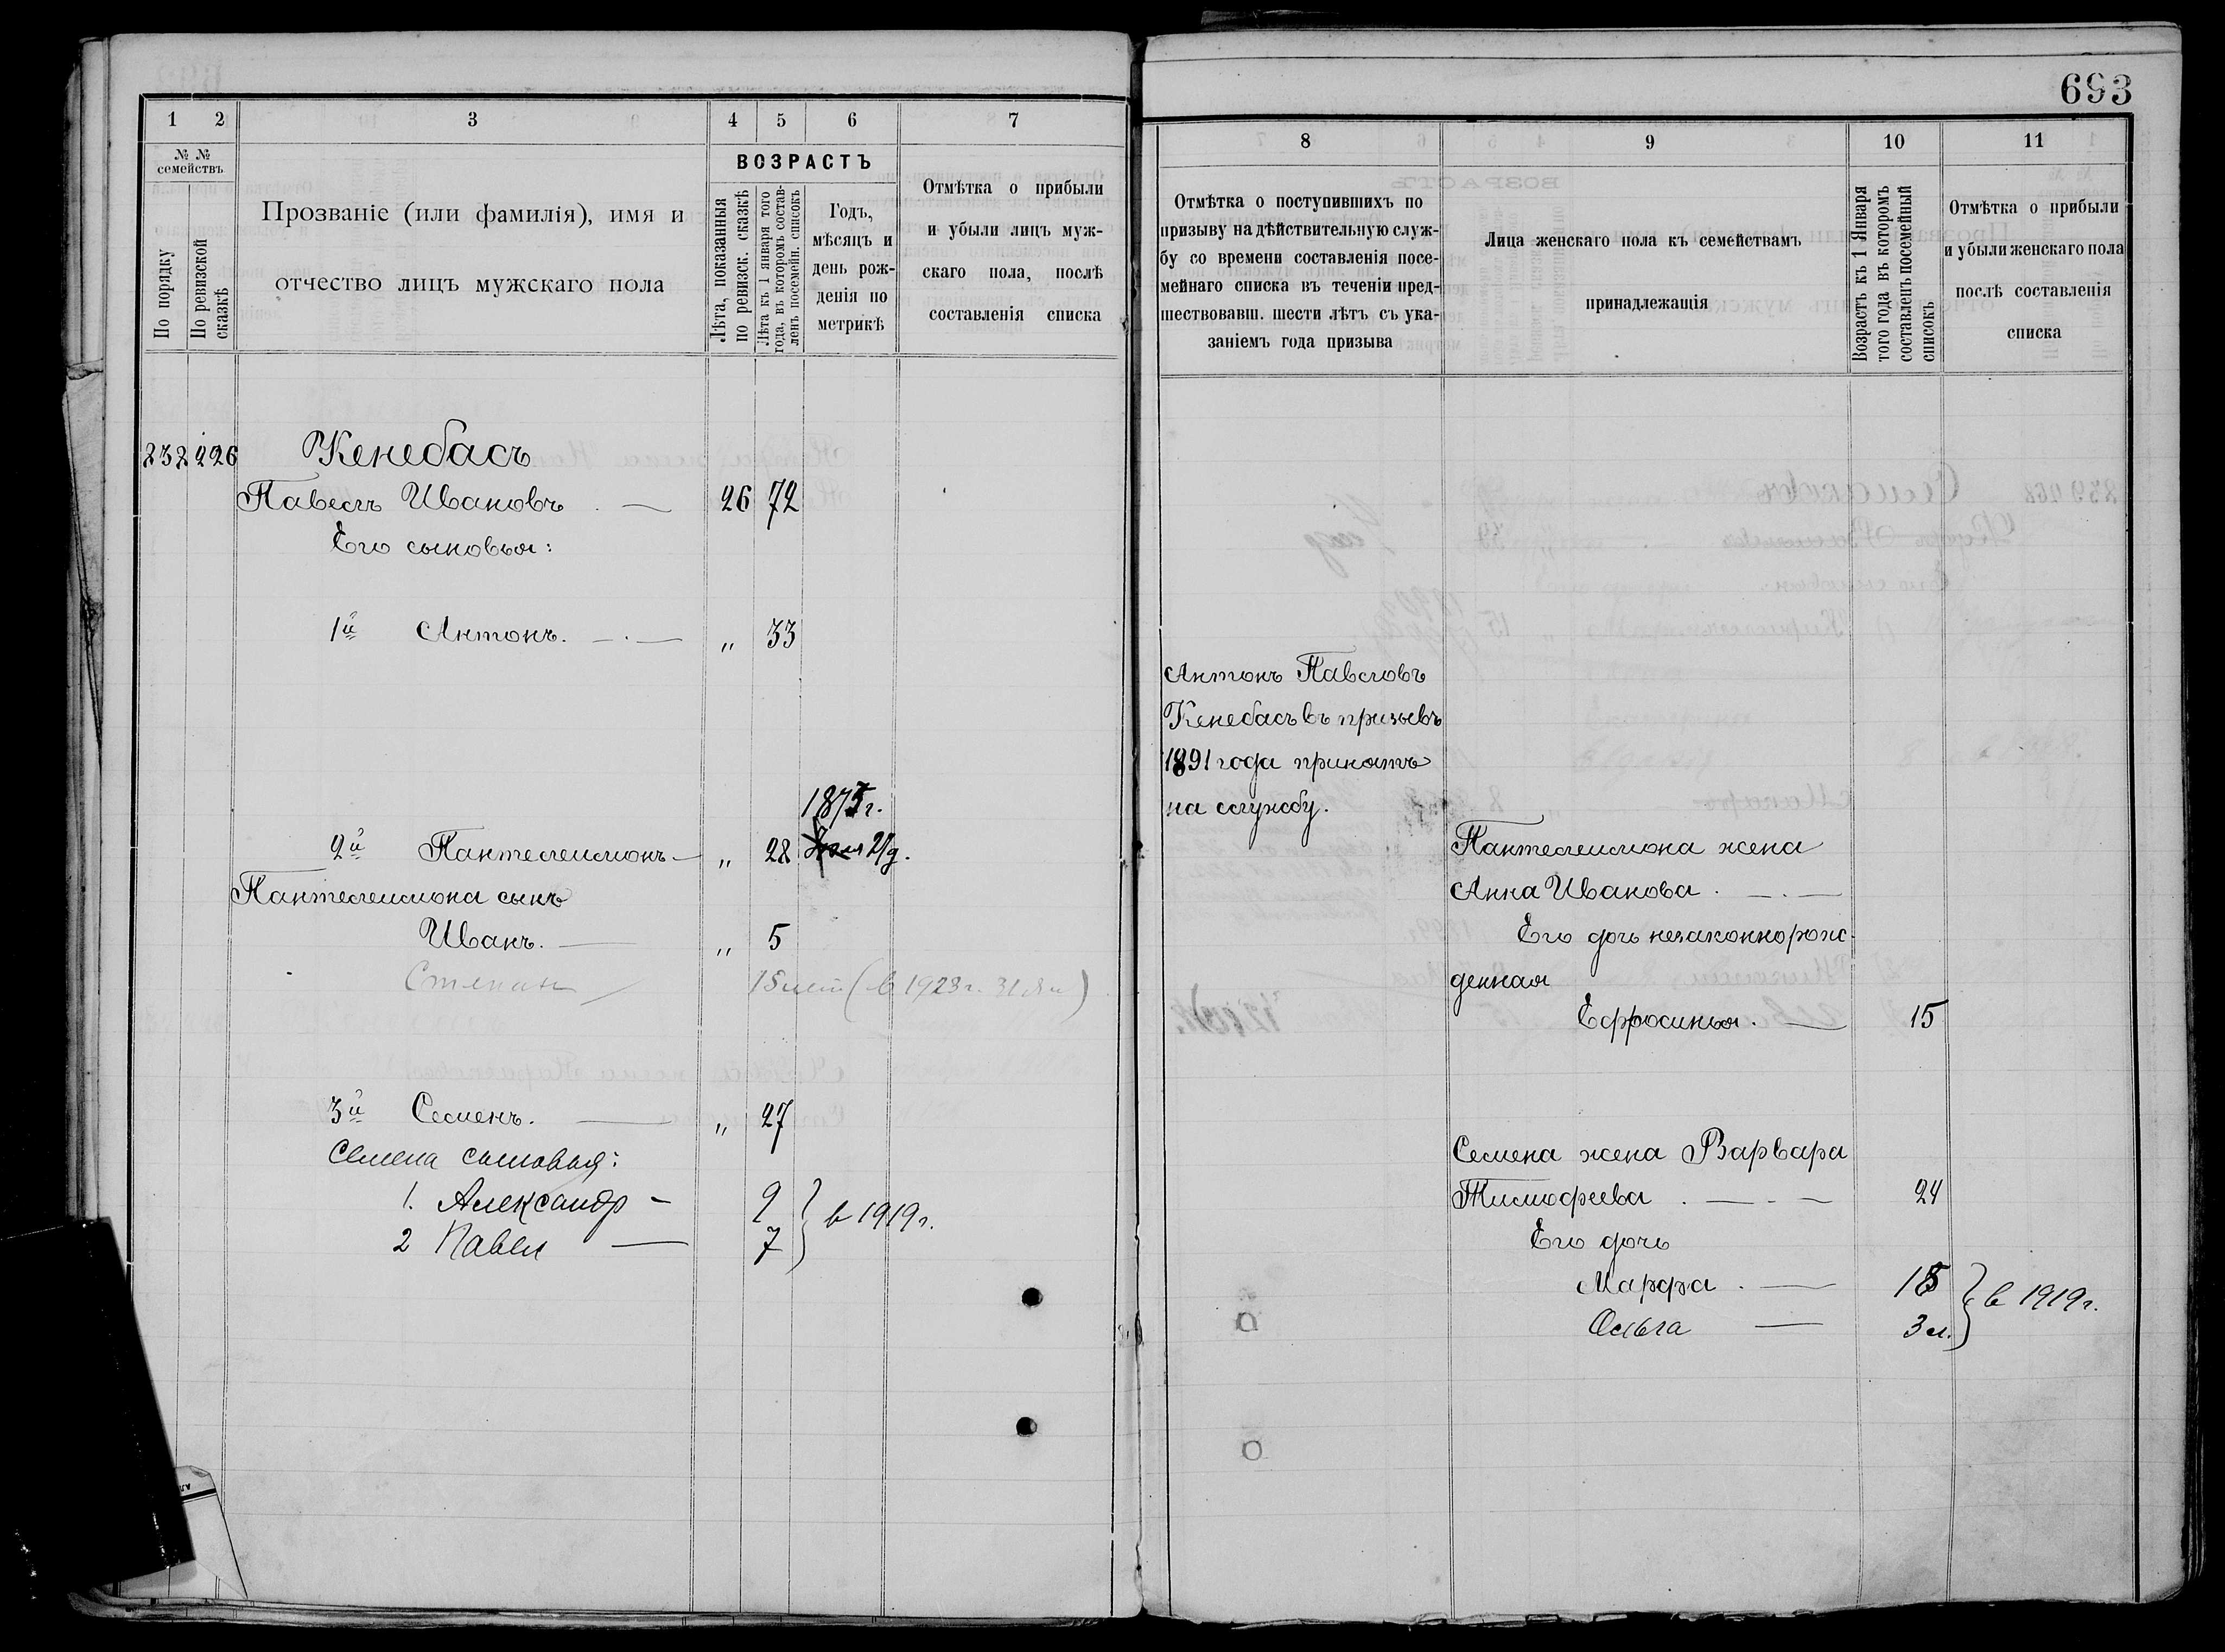 693
1 2 3 4 5 6 7
№ № семействъ
По порядку
По ревизской сказкѣ
Прозваніе (или фамилія), имя и
отчество лицъ мужскаго пола
ВОЗРАСТЪ
Лѣта, показанныя
по ревизск. сказкѣ
Лѣта къ 1 января того
года, въ которомъ состав-
ленъ посемейн. списокъ
Годъ,
мѣсяцъ и
день рож-
денія по
метрикѣ
Отмѣтка о прибыли
и убыли лицъ муж-
скаго пола, послѣ
составленія списка
232 226 Кенебасъ
Павелъ Ивановъ . — 26 72
Его сыновья:
1й Антонъ. — . — „ 33
1875 г.
2й Пантелеимонъ — „ 28 21/9.
Пантелеимона сынъ
Иванъ. — „ 5
Степан 15 лет (в 1923 г. 31 )
3й Семенъ. — „ 27
Семена сыновья:
1. Александр — 9
2 Павел — 7
} в 1919 г.
8 9 10 11
Отмѣтка о поступившихъ по
призыву на дѣйствительную служ-
бу со времени составленія посе-
мейнаго списка въ теченіи пред-
шествовавш. шести лѣтъ съ ука-
заніемъ года призыва
Лица женскаго пола къ семействамъ
принадлежащія
Возрастъ къ 1 Января
того года въ которомъ
составленъ посемейный
списокъ
Отмѣтка о прибыли
и убыли женскаго пола
послѣ составленія
списка
Антонъ Павловъ
Кенебасъ въ призывъ
1891 года принятъ
на службу.
Пантелеимона жена
Анна Иванова . — . —
Его дочь незаконнорож-
денная
Ефросинья. — 15
Семена жена Варвара
Тимофеева . — . — 24
Его дочь
Марфа . — 15
Ольга — 3 м.
} в 1919 г.